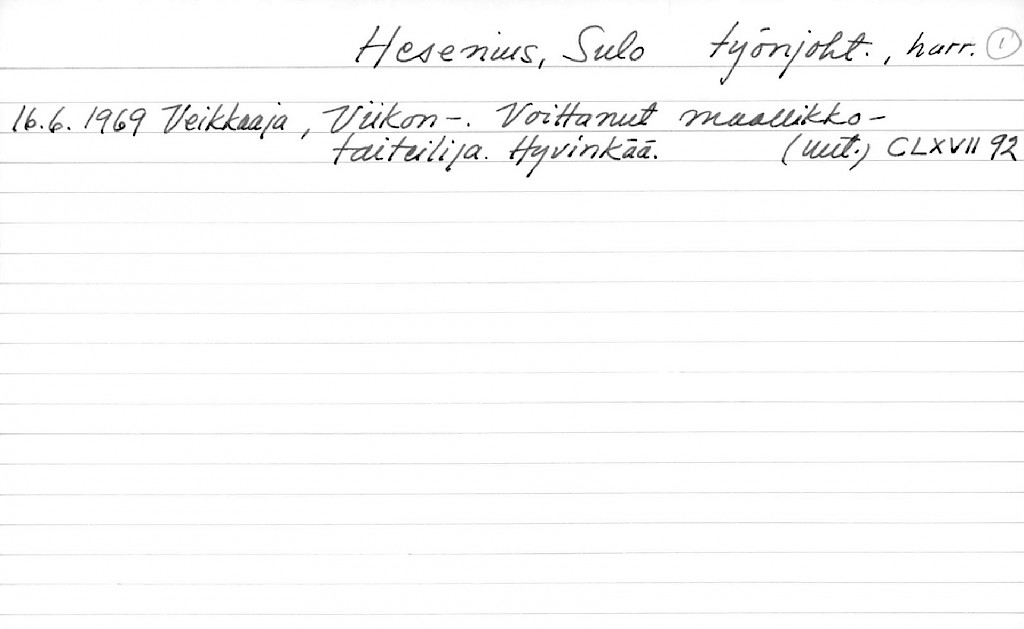 Hesenius, Sulo työnjoht., harr. 1
16.6.1969 Veikkaaja, Viikon-. Voittanut maallikko-
taiteilija. Hyvinkää. (uut.) CLXVII 92